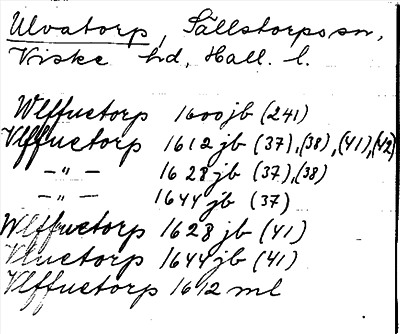 Ulvatorp, Sällstorps sn,
Viske hd, Hall. l.
Wlffuetorp 1600 jb (241)
Vlffuetorp 1612 jb (37), (38), (41), (42)
— " — 1628 jb (37), (38)
— " — 1644 jb (37)
Wlffuetorp 1628 jb (41)
Vluetorp 1644 jb (41)
Vlffuetorp 1612 ml